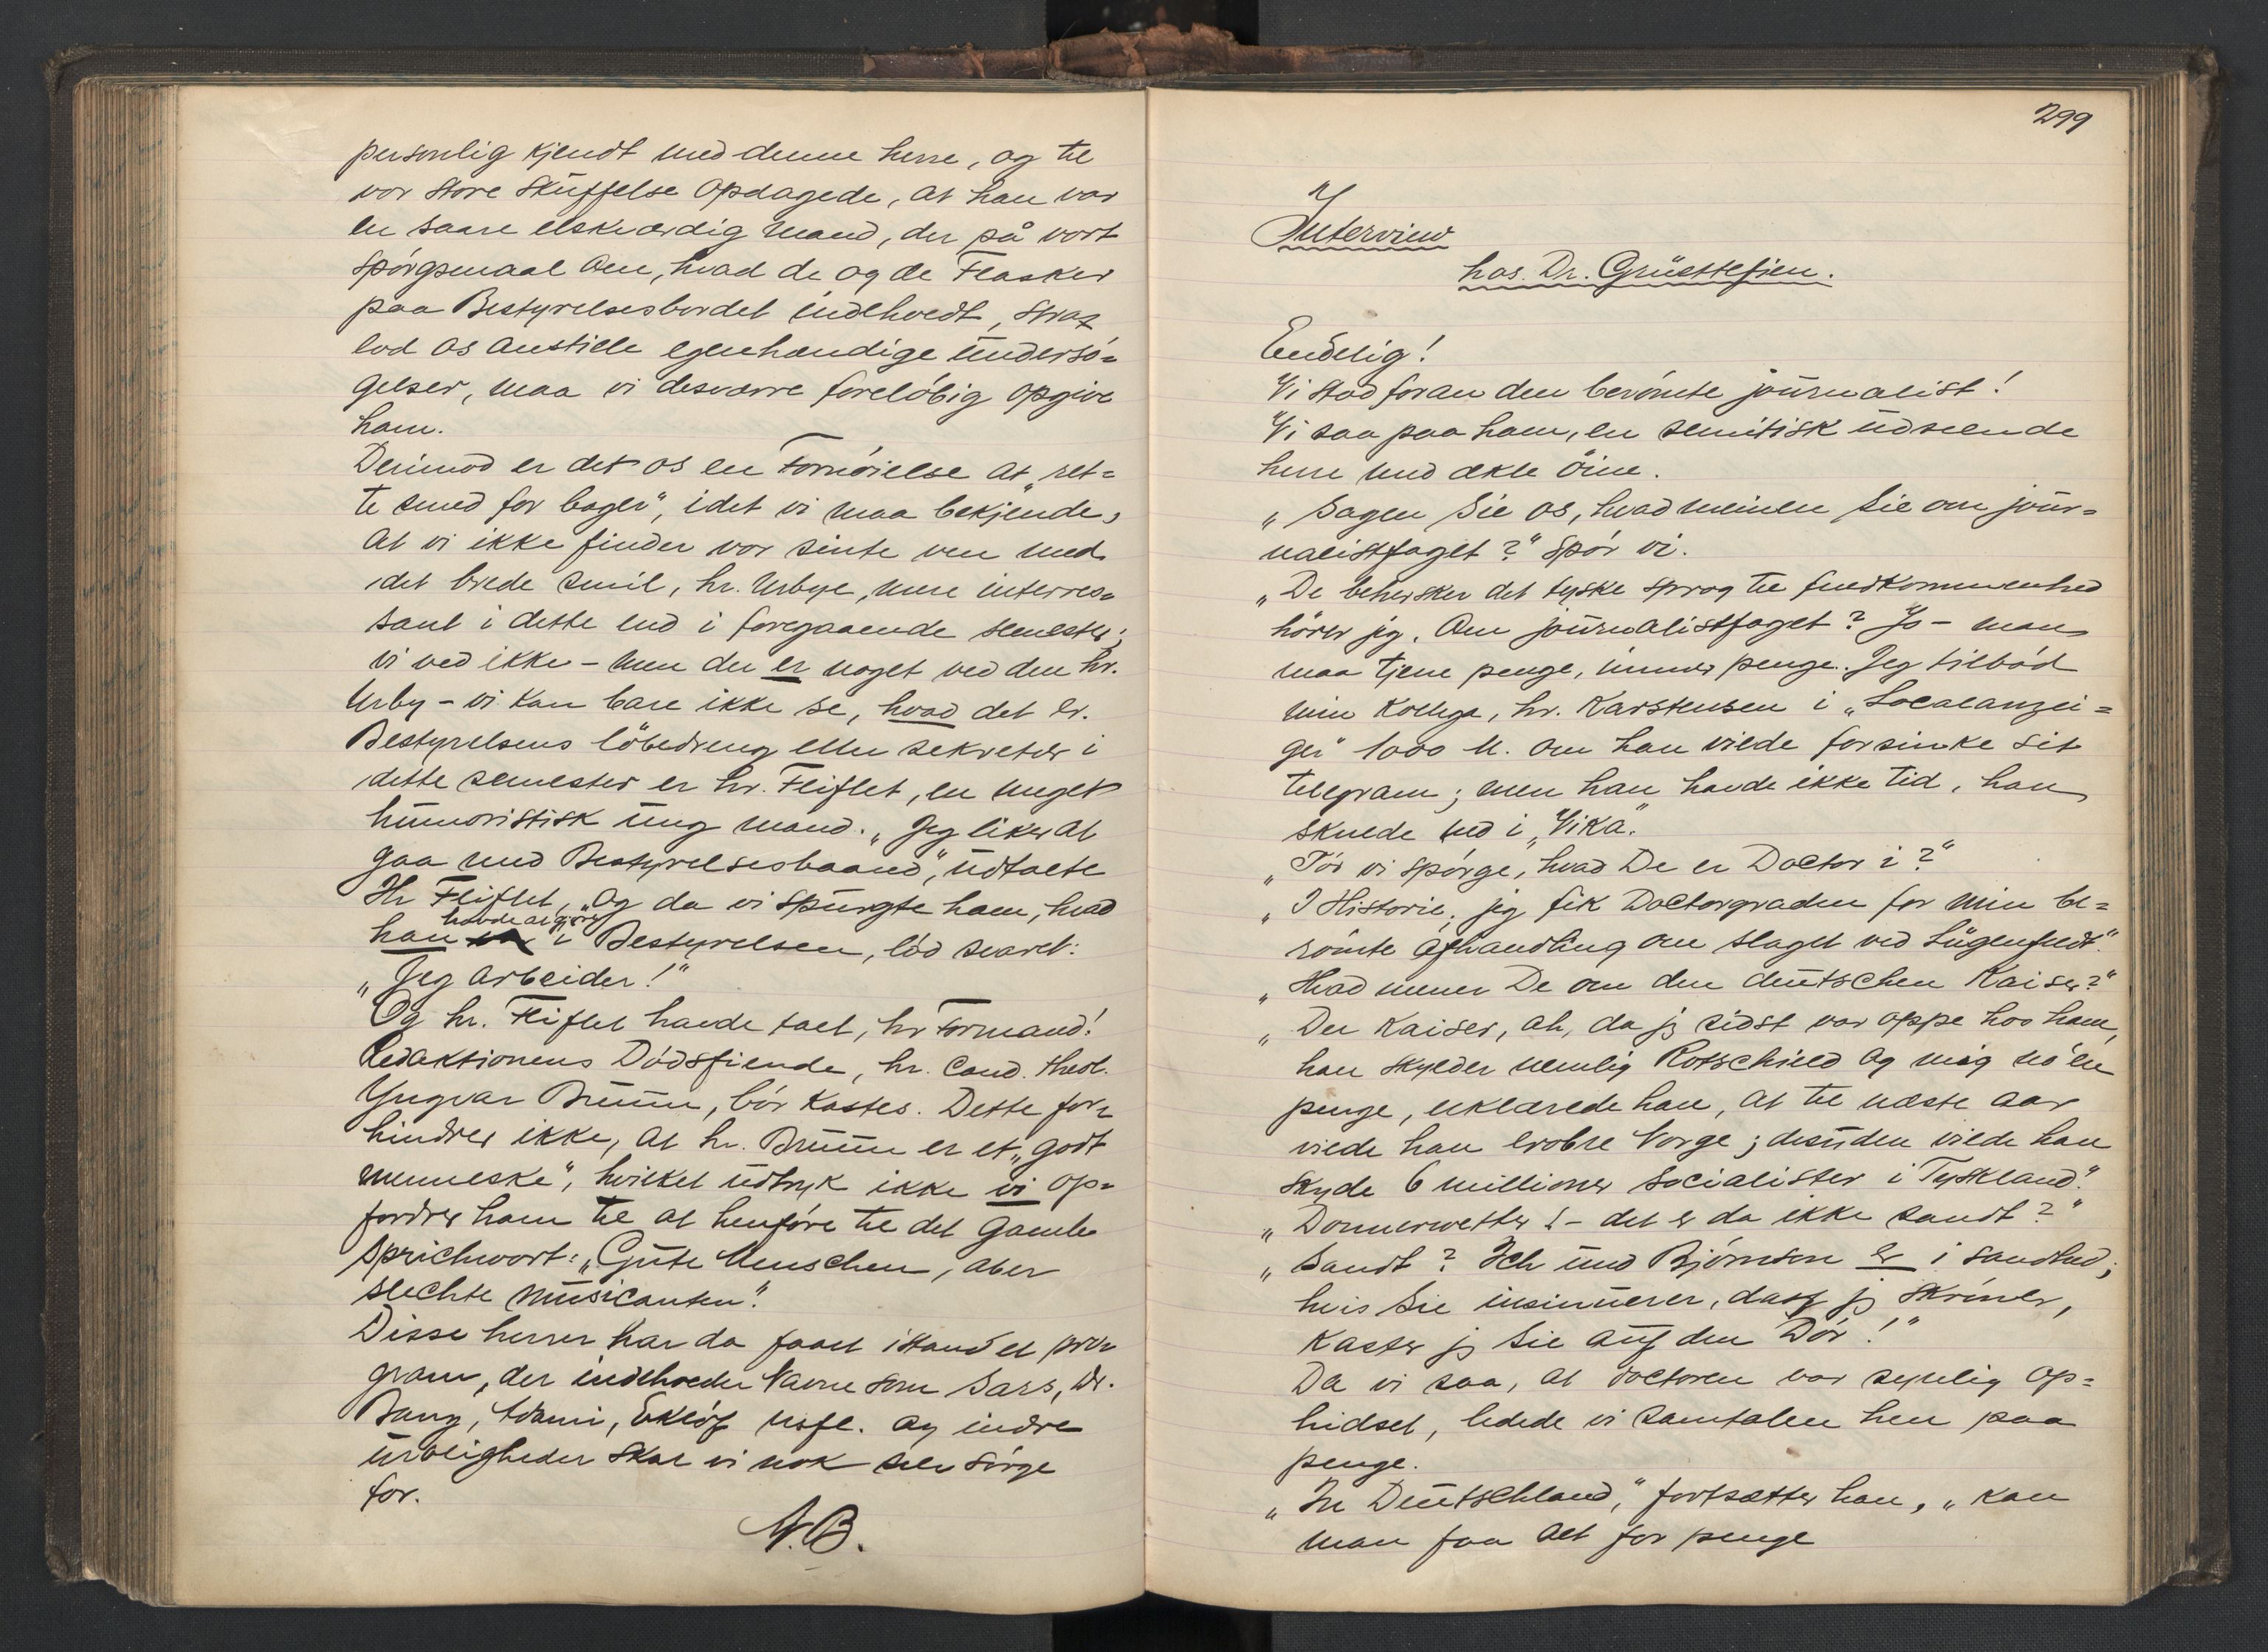 personlig kjendt med denne herre, og til
vor store skuffelse opdagede, at han var
en saare elskværdig mand, der på vort
spörgsmaal om, hvad de og de Flasker
paa Bestyrelsesbordet indeholdt, strax
lod os anstille egenhændige undersö=
gelser, maa vi desværre foreløbig opgive
ham.
Derimod er det os en Fornöielse at „ret=
te smed for bager“, idet vi maa bekjende,
at vi ikke finder vor sinte ven med
det brede smil, hr. Urbye, mere interres=
sant i dette end i foregaaende semester;
vi ved ikke – men der er noget ved den hr.
Urby – vi kan bare ikke se, hvad det er.
Bestyrelsens löbedreng eller sekretær i
dette semester er hr. Fliflet, en meget
humoristisk ung mand. „Jeg liker at
gaa med Bestyrelsesbaand“, udtalte
Hr Fliflet, og da vi spurgte ham, hvad
han havde at gjøre i Bestyrelsen, lød svaret:
„Jeg arbeider!“
Og hr. Fliflet havde talt, hr Formand!
Redaktionens Dödsfiende, hr. Cand. theol.
Yngvar Bruun, bör kastes. Dette for=
hindrer ikke, at hr. Bruun er et „godt
menneske“, hvilket udtryk ikke vi op=
fordrer ham til at henføre til det gamle
Sprichwort: „Gute Menschen, aber
slechte musicanten“.
Disse herrer har da faaet istand et pro=
gram, der indeholder Navne som Sars, Dr.
Bang, Adami, Eklöf usfl. og indre
uroligheder skal vi nok selv sörge
for.
N.B.
299
Interview
hos Dr. Grüettefien.
Endelig!
Vi stod foran den berömte journalist!
Vi saa paa ham, en semitisk udseende
herre med ækle öine.
„Sagen Sie os, hvad meinen Sie om jour=
nalistfaget?“ spör vi.
„De behersker det tyske sprog til fuldkommenhed
hörer jeg. Om journalistfaget? Jo – man
maa tjene penge, immer penge. Jeg tilböd
min Kollega, hr. Karstensen i „Localanzei=
ger“ 1000 M. om han vilde forsinke sit
telegram; men han havde ikke tid, han
skulde ned i „Vika“.
„Tör vi spörge, hvad De er Doctor i?“
„I Historie, jeg fik Doctorgraden for min be=
römte afhandling om slaget ved Lügenfeldt“.
„Hvad mener De om den deutschen Kaiser?“
„Der Kaiser, ah, da jg sidst var oppe hos ham,
han skylder nemlig Rotschild og mig no'en
penge, erklærede han, at til næste aar
vilde han erobre Norge; desuden vilde han
skyde 6 millioner socialister i Tyskland“.
„Donnerwetter! – det er da ikke sandt?“
„Sandt? Ich und Bjørnson er i sandhed;
hvis Sie insinuerer, dass jg skröner,
kaster jg Sie auf den Dör!“
Da vi saa, at doctoren var synlig op=
hidset, ledede vi samtalen hen paa
penge.
„In Deutschland,“ fortsætter han, „kan
man faa alt for penge